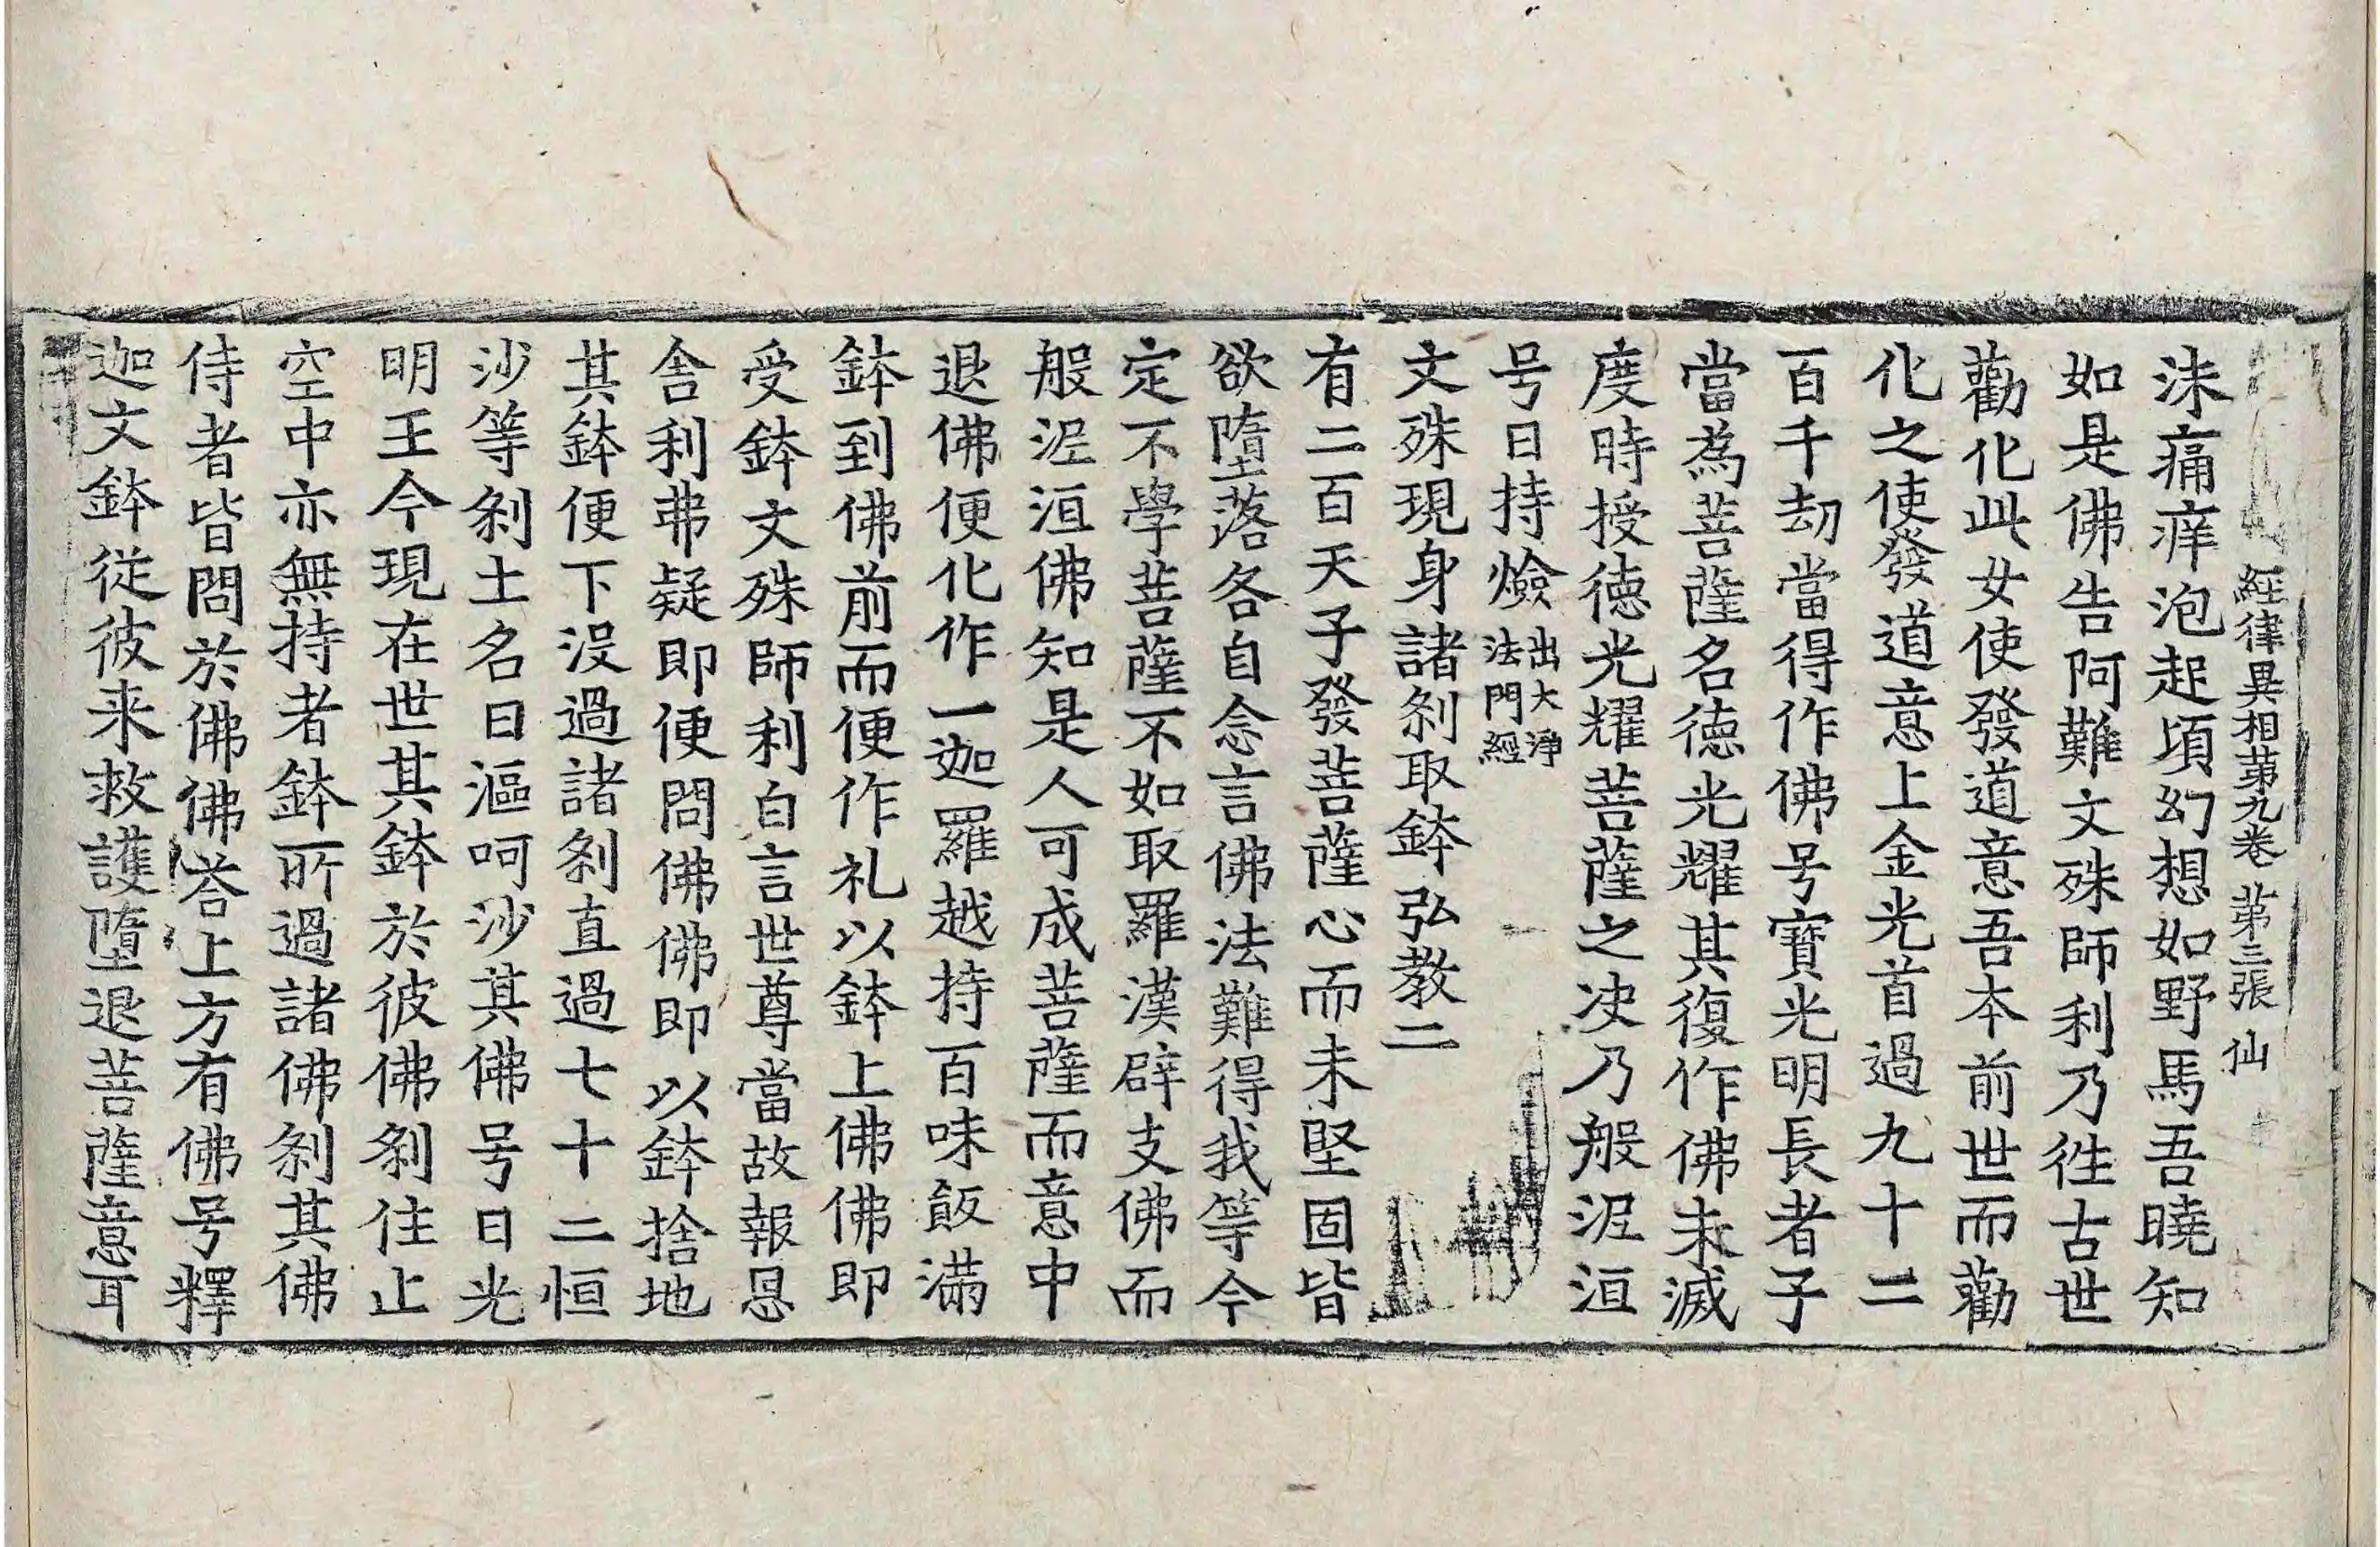 經律異相苐九卷 苐三張 仙
沫痛痒泡起頃幻想如野馬吾曉知
如是佛告阿難文殊師利乃徃古世
勸化此女使發道意吾本前世而勸
化之使發道意上金光首過九十二
百千劫當得作佛号寶光明長者子
當為菩薩名德光耀其復作佛未滅
度時授德光耀菩薩之决乃般泥洹
号曰持燄出大淨法門經
文殊現身諸刹取鉢弘教二
有二百天子發菩薩心而未堅固皆
欲墮落各自念言佛法難得我等今
定不學菩薩不如取羅漢辟支佛而
般泥洹佛知是人可成菩薩而意中
退佛便化作一迦羅越持百味飯滿
鉢到佛前而便作礼以鉢上佛佛即
受鉢文殊師利白言世尊當故報恩
舍利弗疑即便問佛佛即以鉢捨地
其鉢便下没過諸刹直過七十二恒
沙等刹土名曰漚呵沙其佛号曰光
明王今現在世其鉢於彼佛刹住止
空中亦無持者鉢所過諸佛刹其佛
侍者皆問於佛佛荅上方有佛号釋
迦文鉢從彼来救護墮退菩薩意耳